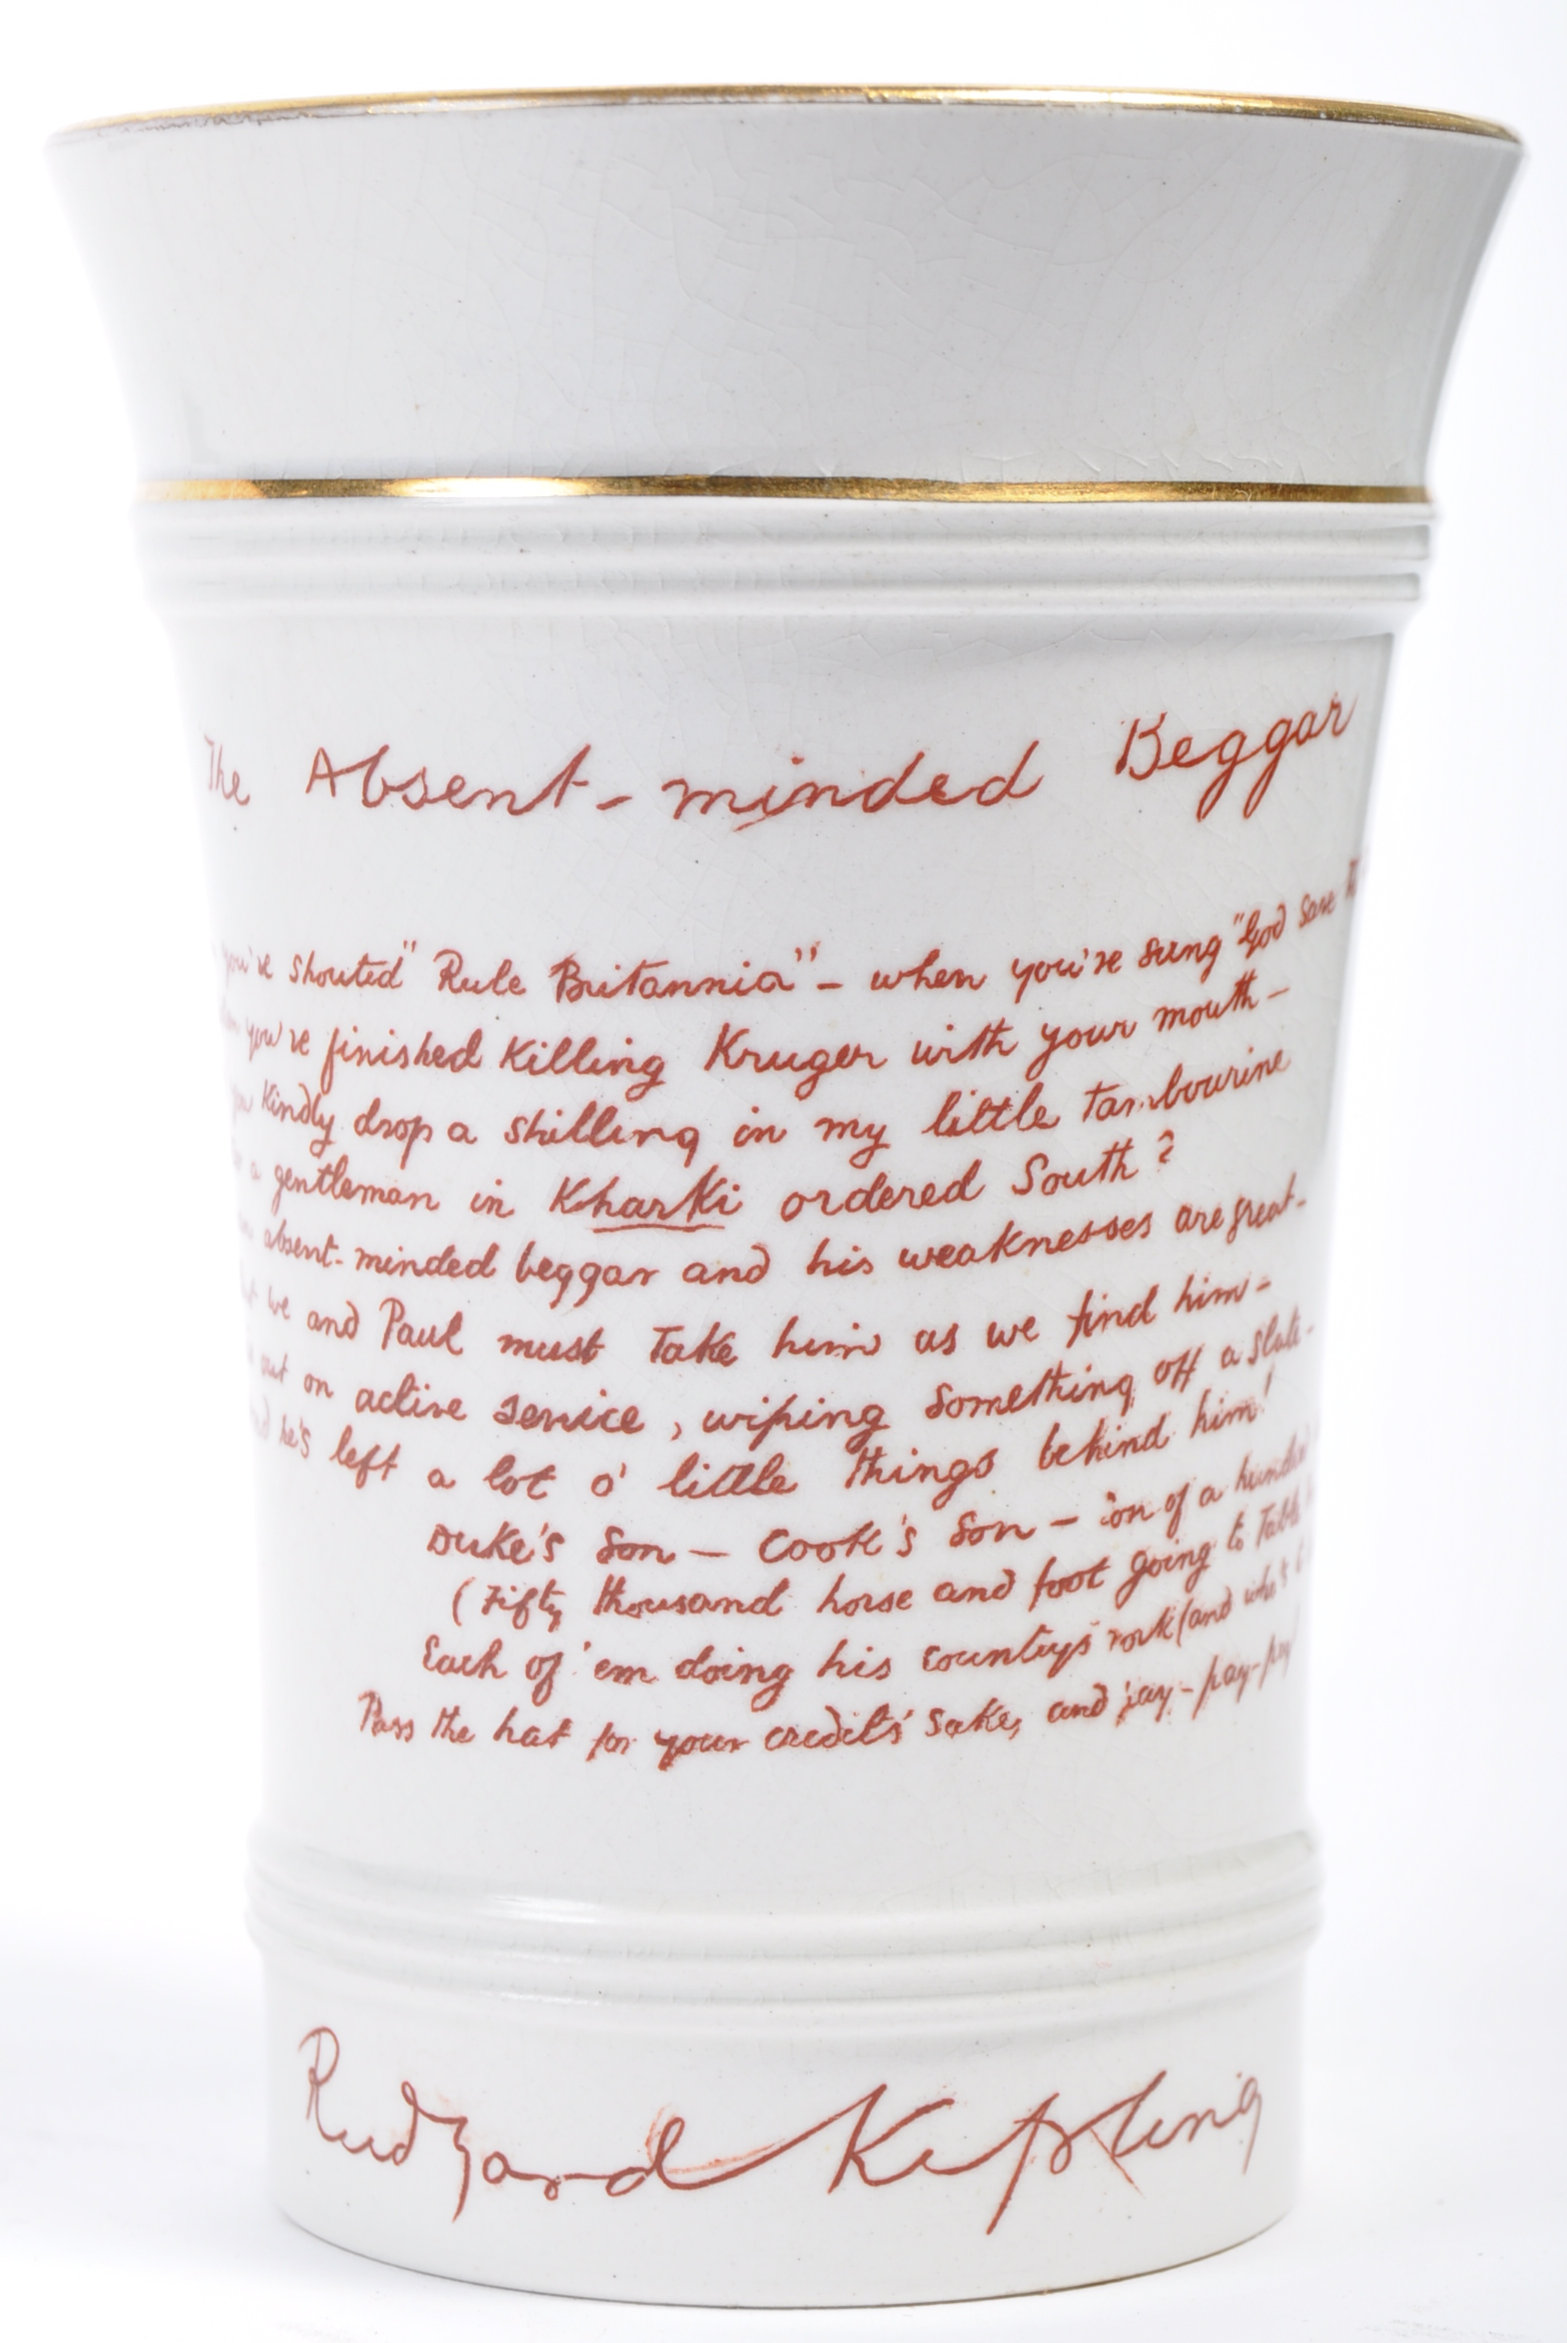 The Absent-minded Beggar
you've shouted "Rule Britannia" - when you're sung "God save
you're finished Killing Kruger with your mouth -
Kindly drop a shilling in my little tambourine
a gentleman in Kharki ordered South?
absent-minded beggar and his weaknesses are great -
we and Paul must Take him as we find him -
out on active service, wiping something off a slate -
he's left a lot o' little things behind him!
Duke's Son - Cook's Son - son of a hundred
(Fifty thousand horse and foot going to Table
Each of 'em doing his country's work (and who's
Pass the hat for your credit's sake, and pay - pay - pay
Rudyard Kipling